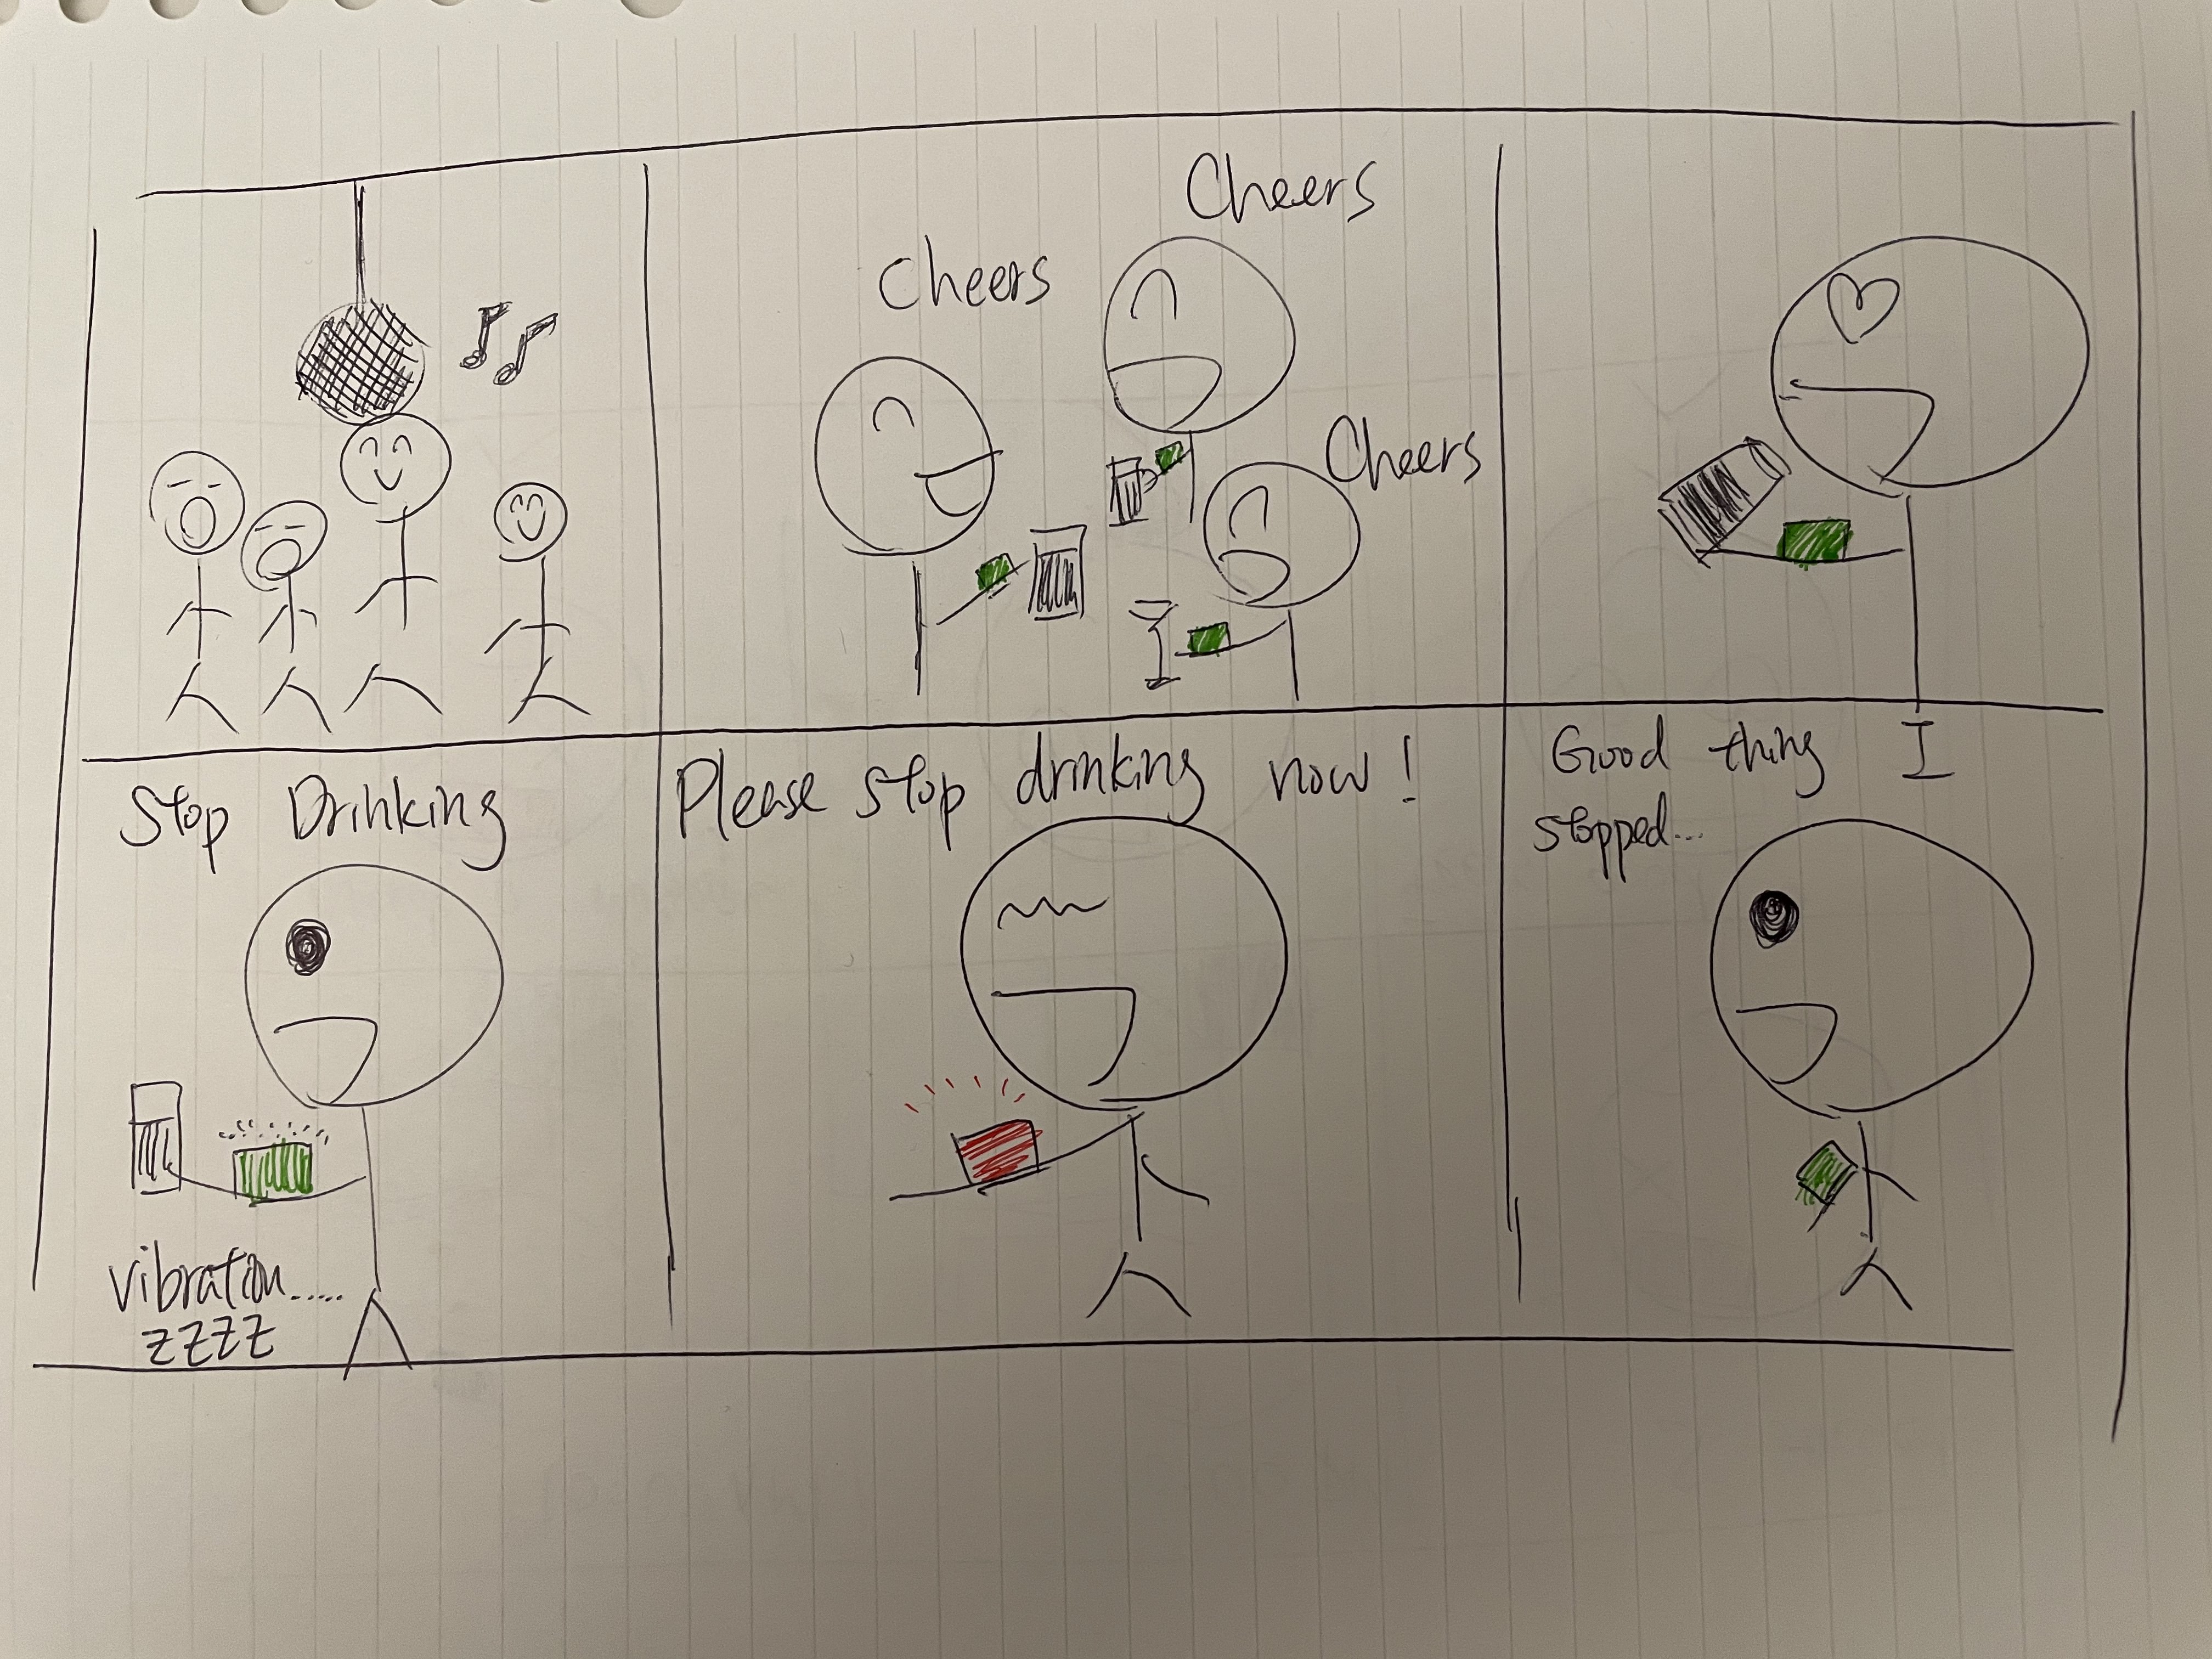 Cheers
Cheers
Cheers
Stop Drinking
vibration.....
zzzz
Please stop drinking now!
Good thing I
stopped...